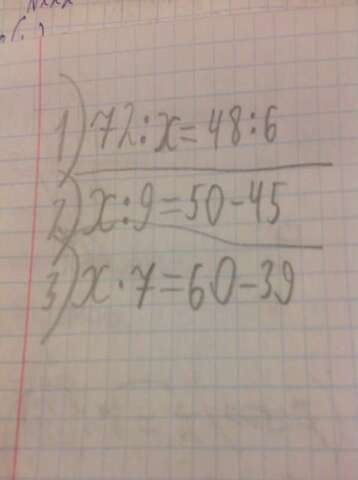 1) 72:x=48:6
2) x:9=50-45
3) x·7=60-39